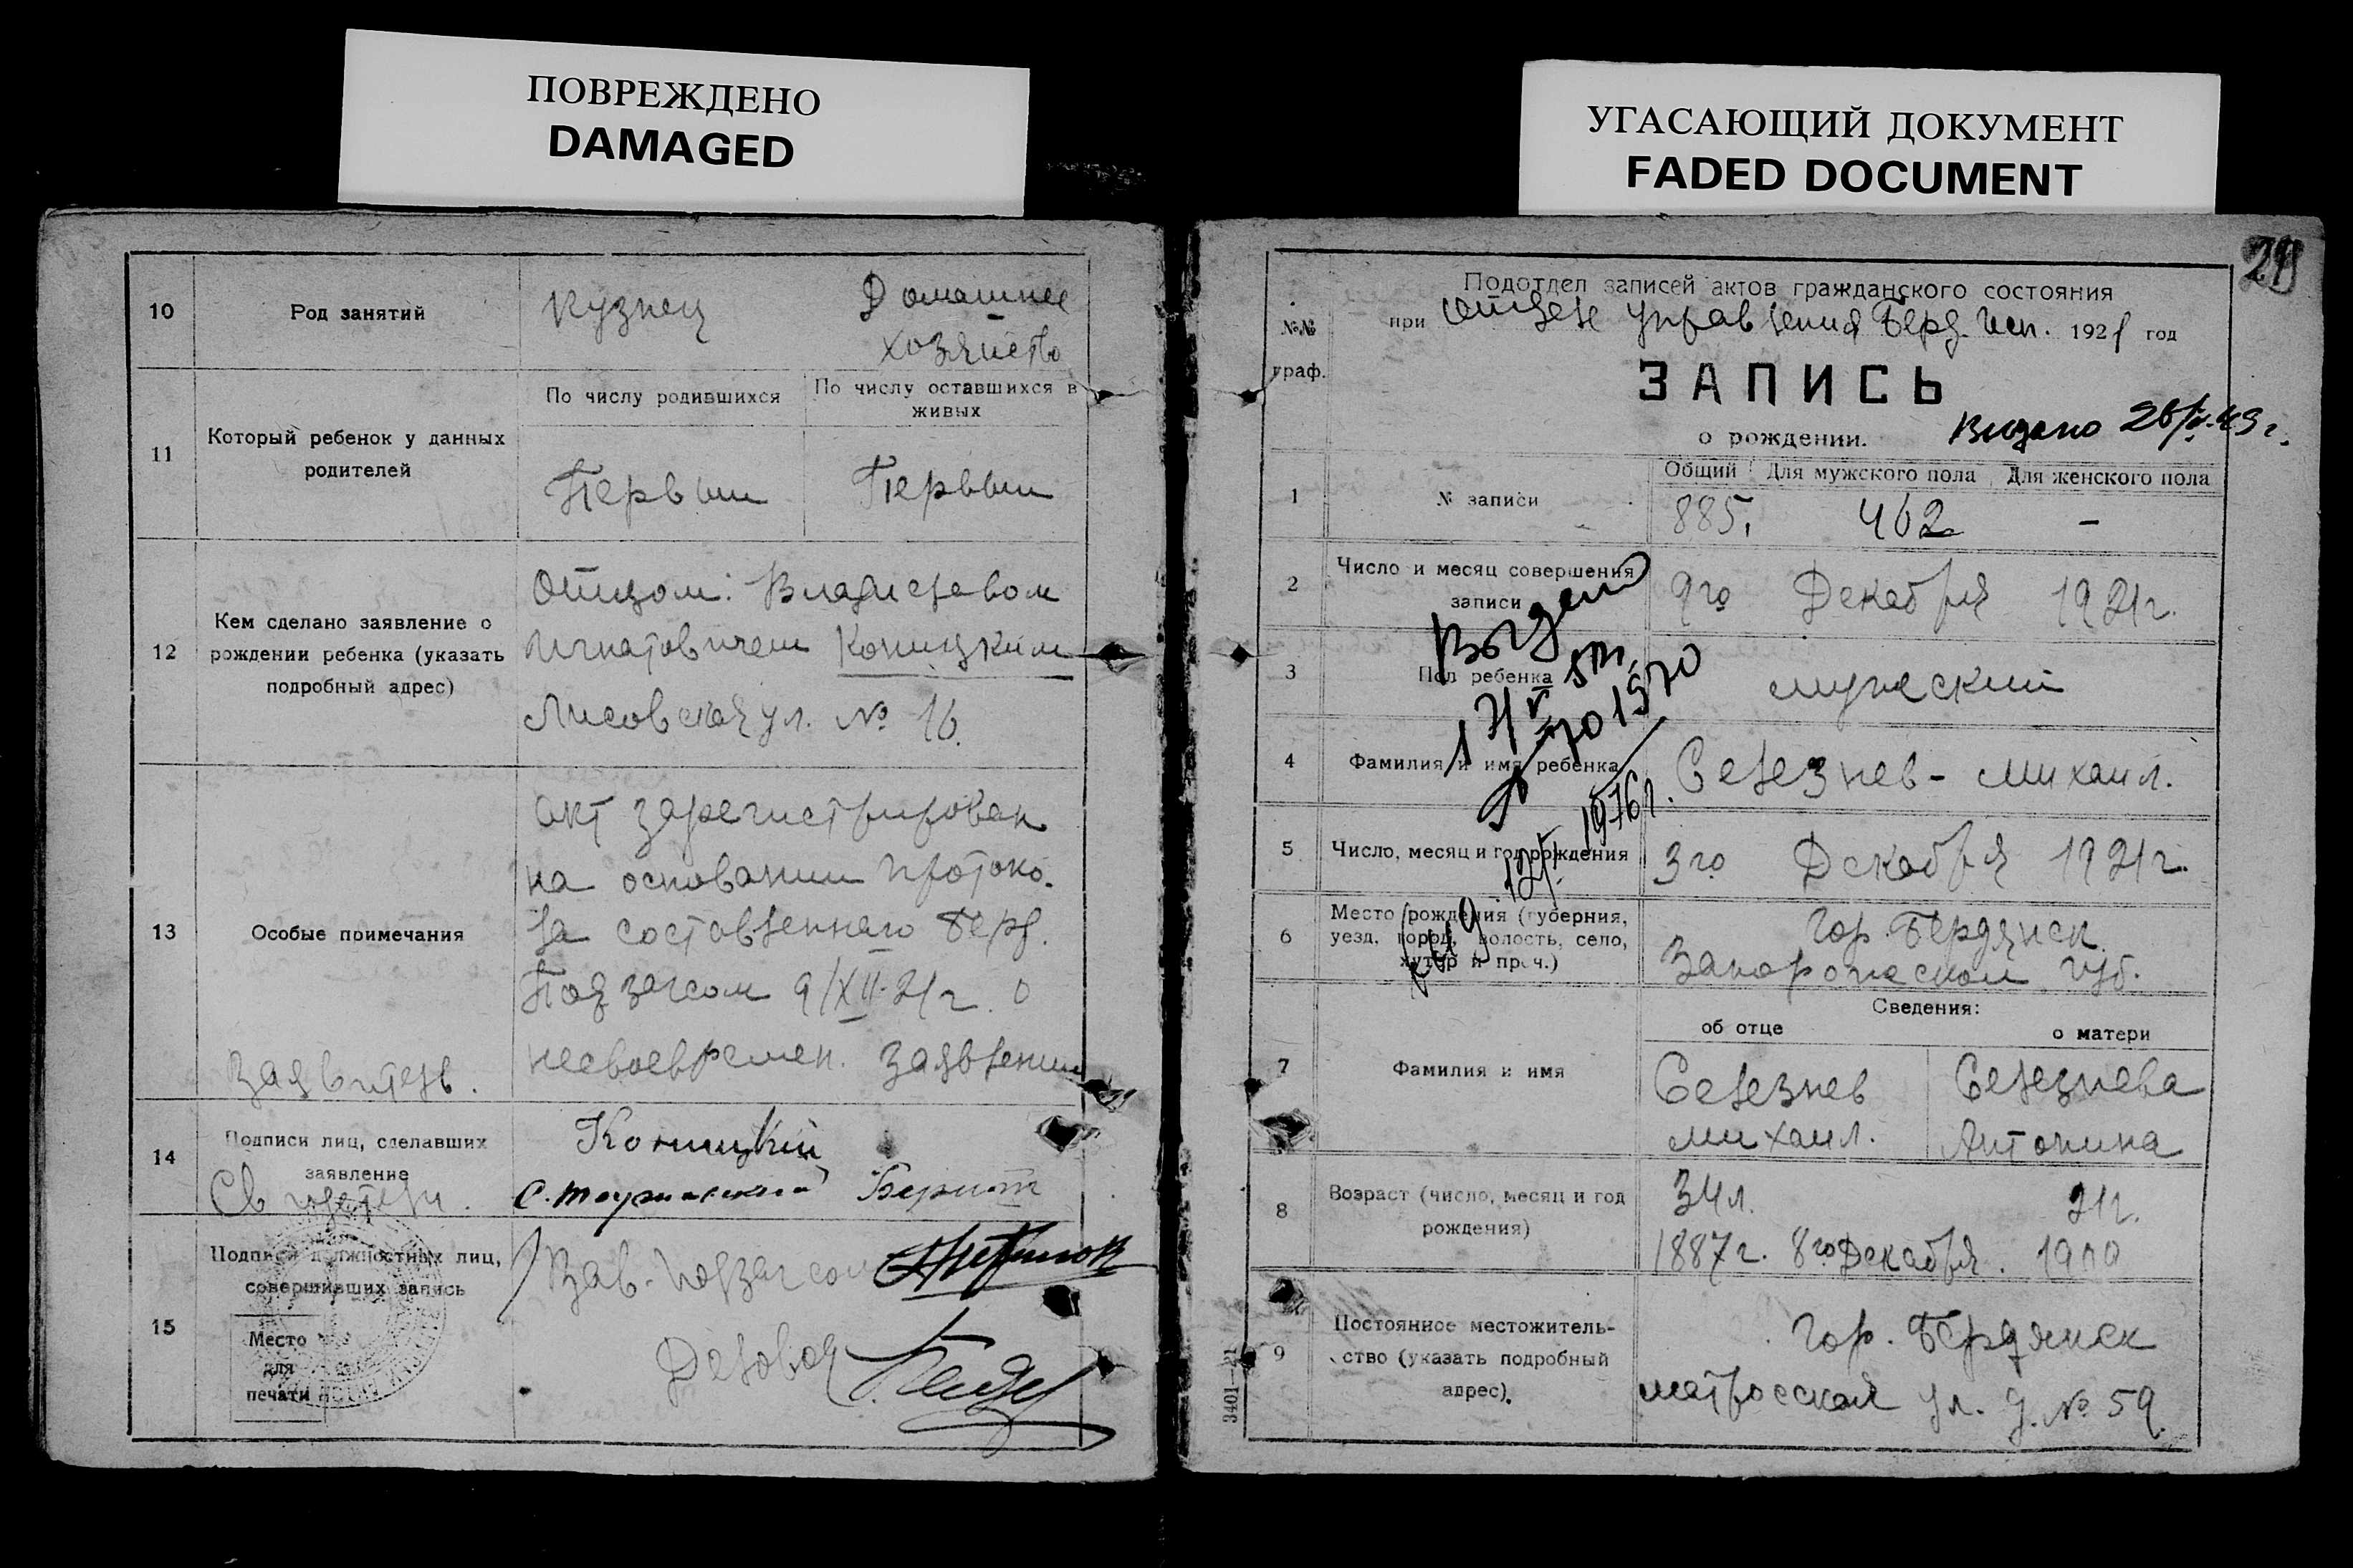 ПОВРЕЖДЕНО
DAMAGED
УГАСАЮЩИЙ ДОКУМЕНТ
FADED DOCUMENT
10
Род занятий
Кузнец
Домашнее
хозяйство
11
Который ребенок у данных
родителей
По числу родившихся
По числу оставшихся в
живых
Первый
Первый
12
Кем сделано заявление о
рождении ребенка (указать
подробный адрес)
Отцом: Владиславом
Игнатовичем Коницким
Лисовская ул. № 16.
13
Особые примечания
Акт зарегистрирован
на основании протоко-
ла составленнаго Берд.
Подзагсом 9/XII-21 г. о
несвоевремен. заявлении
Заявитель.
14
Подписи лиц, сделавших
заявление
Свидетели.
Коницкий
15
Подписи должностных лиц,
совершивших запись
Место
для
печати
Зав. Подзагсом
Деловод
29
№№
граф.
Подотдел записей актов гражданского состояния
при Отделе Управления Берд. Исп. 1921 год
ЗАПИСЬ
о рождении.
Выдано
1
№ записи
Общий
Для мужского пола
Для женского пола
885.
462
-
2
Число и месяц совершения
записи
9го Декабря 1921 г.
3
Пол ребенка
мужский
4
Фамилия и имя ребенка
Селезнев - Михаил.
5
Число, месяц и год рождения
3го Декабря 1921 г.
6
Место рождения (губерния,
уезд, город, волость, село,
хутор и проч.)
Гор. Бердянск
Запорожской губ.
Выдано
1970
1976 г.
7
Фамилия и имя
Сведения:
об отце
о матери
Селезнев
Михаил.
Селезнева
Антонина
8
Возраст (число, месяц и год
рождения)
34 л.
21 г.
1887 г. 8го Декабря. 1900
9
Постоянное местожитель-
ство (указать подробный
адрес).
Гор. Бердянск
Матросская ул. д. № 59.
3401—21